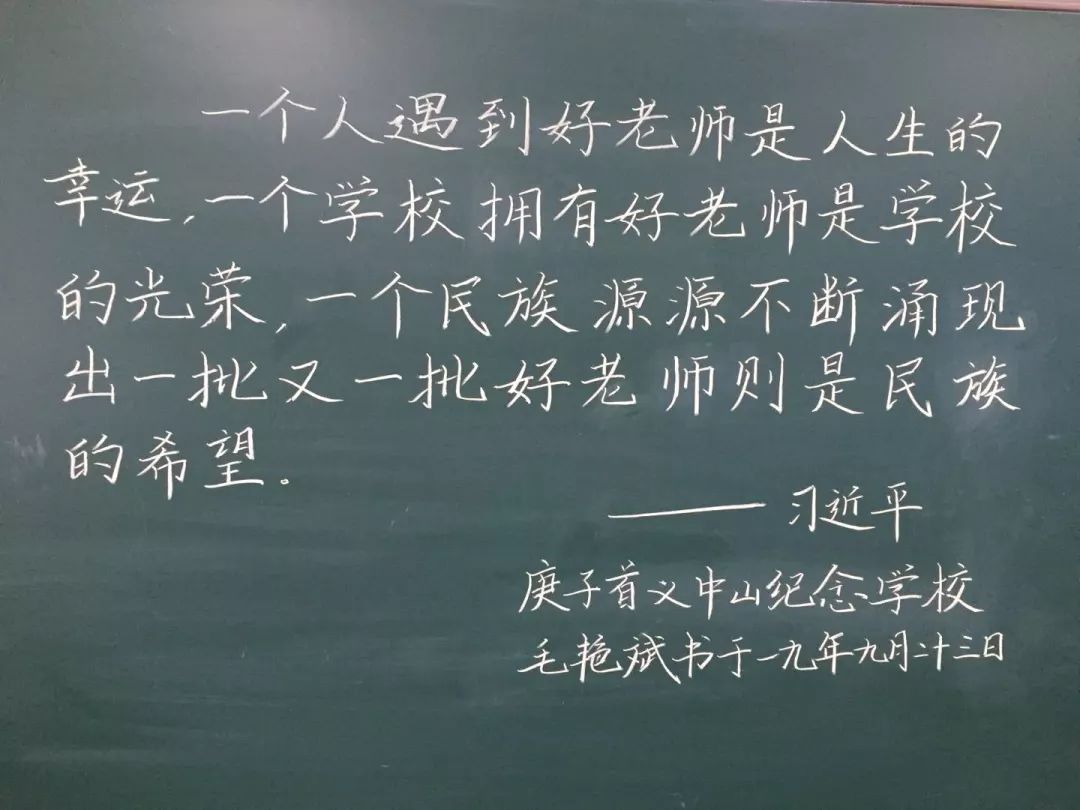 一个人遇到好老师是人生的
幸运,一个学校拥有好老师是学校
的光荣,一个民族源源不断涌现
出一批又一批好老师则是民族
的希望。
——习近平
庚子首义中山纪念学校
毛艳斌书于一九年九月二十三日